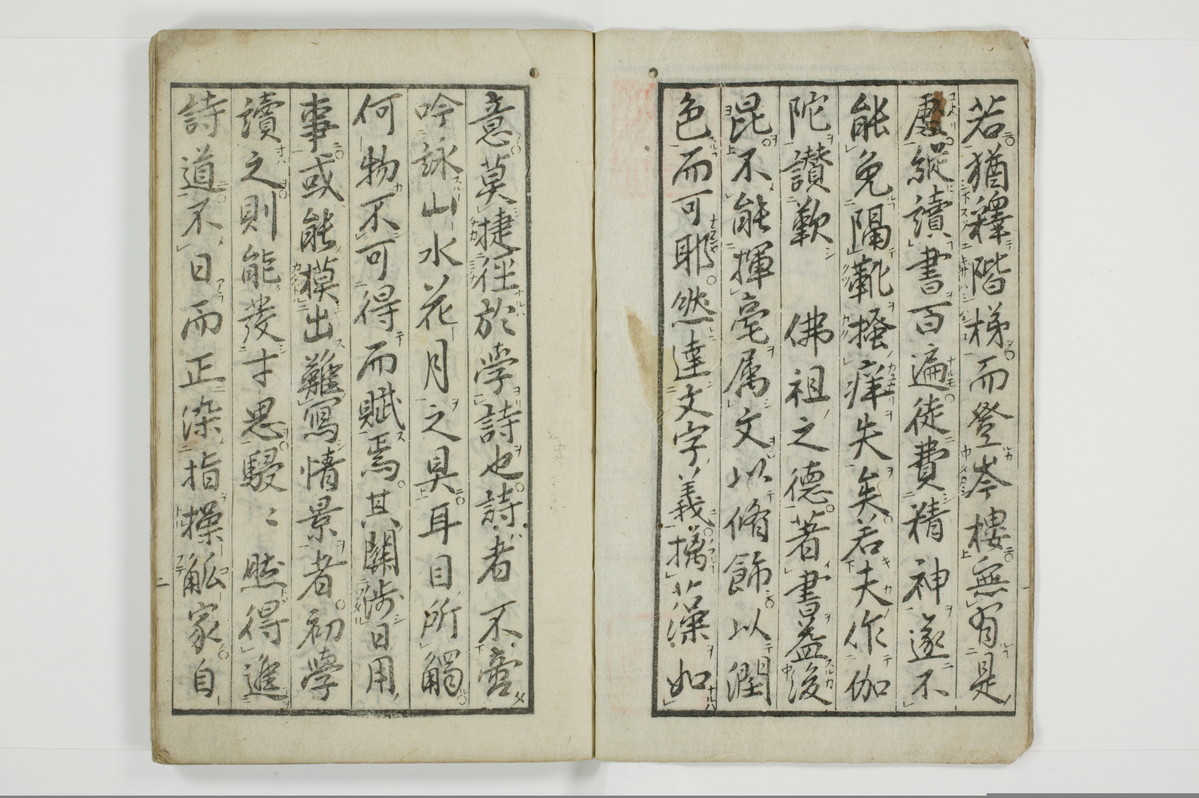 若猶釋階梯而登岑樓無有是
處縱讀書百遍徒費精神遂不
能免隔靴搔痒失矣若夫作伽
陀讃歎　佛祖之德著書益後
昆不能揮毫属文以脩飾以潤
色而可耶然達文字義摛藻如
意莫捷徑於学詩也詩者不啻
吟詠山水花月之具耳目所觸
何物不可得而賦焉其關涉日用
事或能模出難寫情景者初学
讀之則能發才思駸〻然得進
詩道不日而正染指操觚家自
一
二